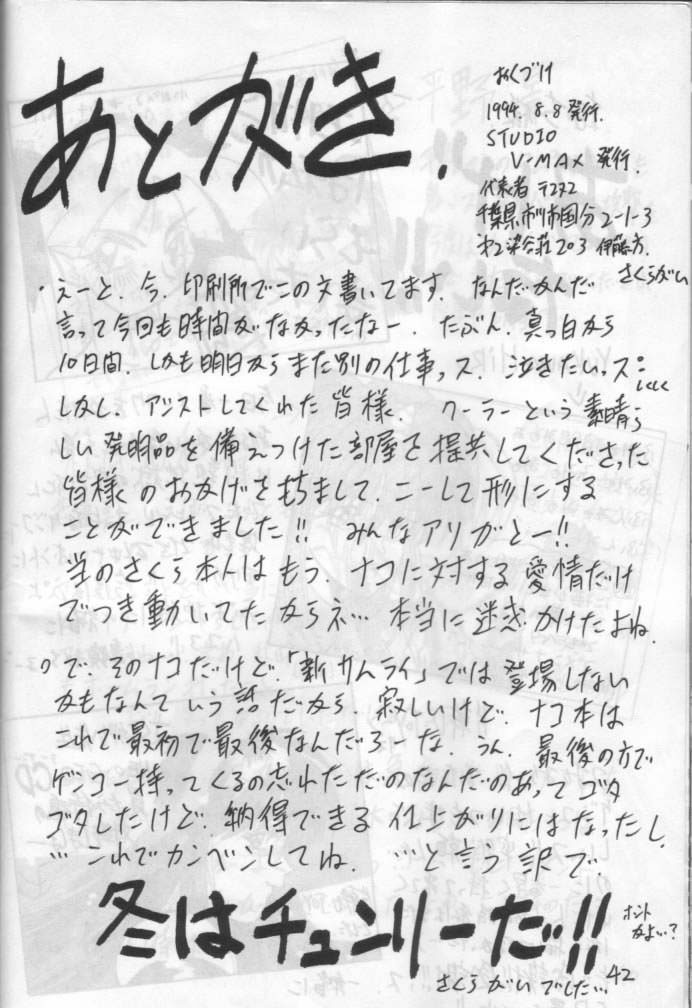 あとがき.
おくづけ
1994. 8. 8 発行.
STUDIO
V-MAX 発行.
代表者
千葉県市川市国分2-1-3
染谷荘203 伊藤方.
さくらがい
・えーと. 今. 印刷所でこの文書いてます. なんだかんだ
言って今回も時間がなかったなー. たぶん. 真っ白から
10日間. しかも明日からまた別の仕事っス. 泣きたいっス…
しかし. アシストしてくれた皆様. クーラーという素晴ら
しい発明品を備えつけた部屋を提供してくださった
皆様のおかげを持ちまして. こーして形にする
ことができました!! みんなアリガとー!!
当のさくら本人はもう. ナコに対する愛情だけ
でつき動いてたからネ… 本当に迷惑かけたよね.
○で. そのナコだけど.「新サムライ」では登場しない
かもなんていう話だから. 寂しいけど. ナコ本は
これで最初で最後なんだろーな. うん. 最後の方で
ゲンコー持ってくるの忘れただのなんだのあってゴタ
ゴタしたけど. 納得できる仕上がりにはなったし.
…これでカンベンしてね. …と言う訳で
冬はチュンリーだっ!!
ホント
かよぃ?
さくらがいでした…
42